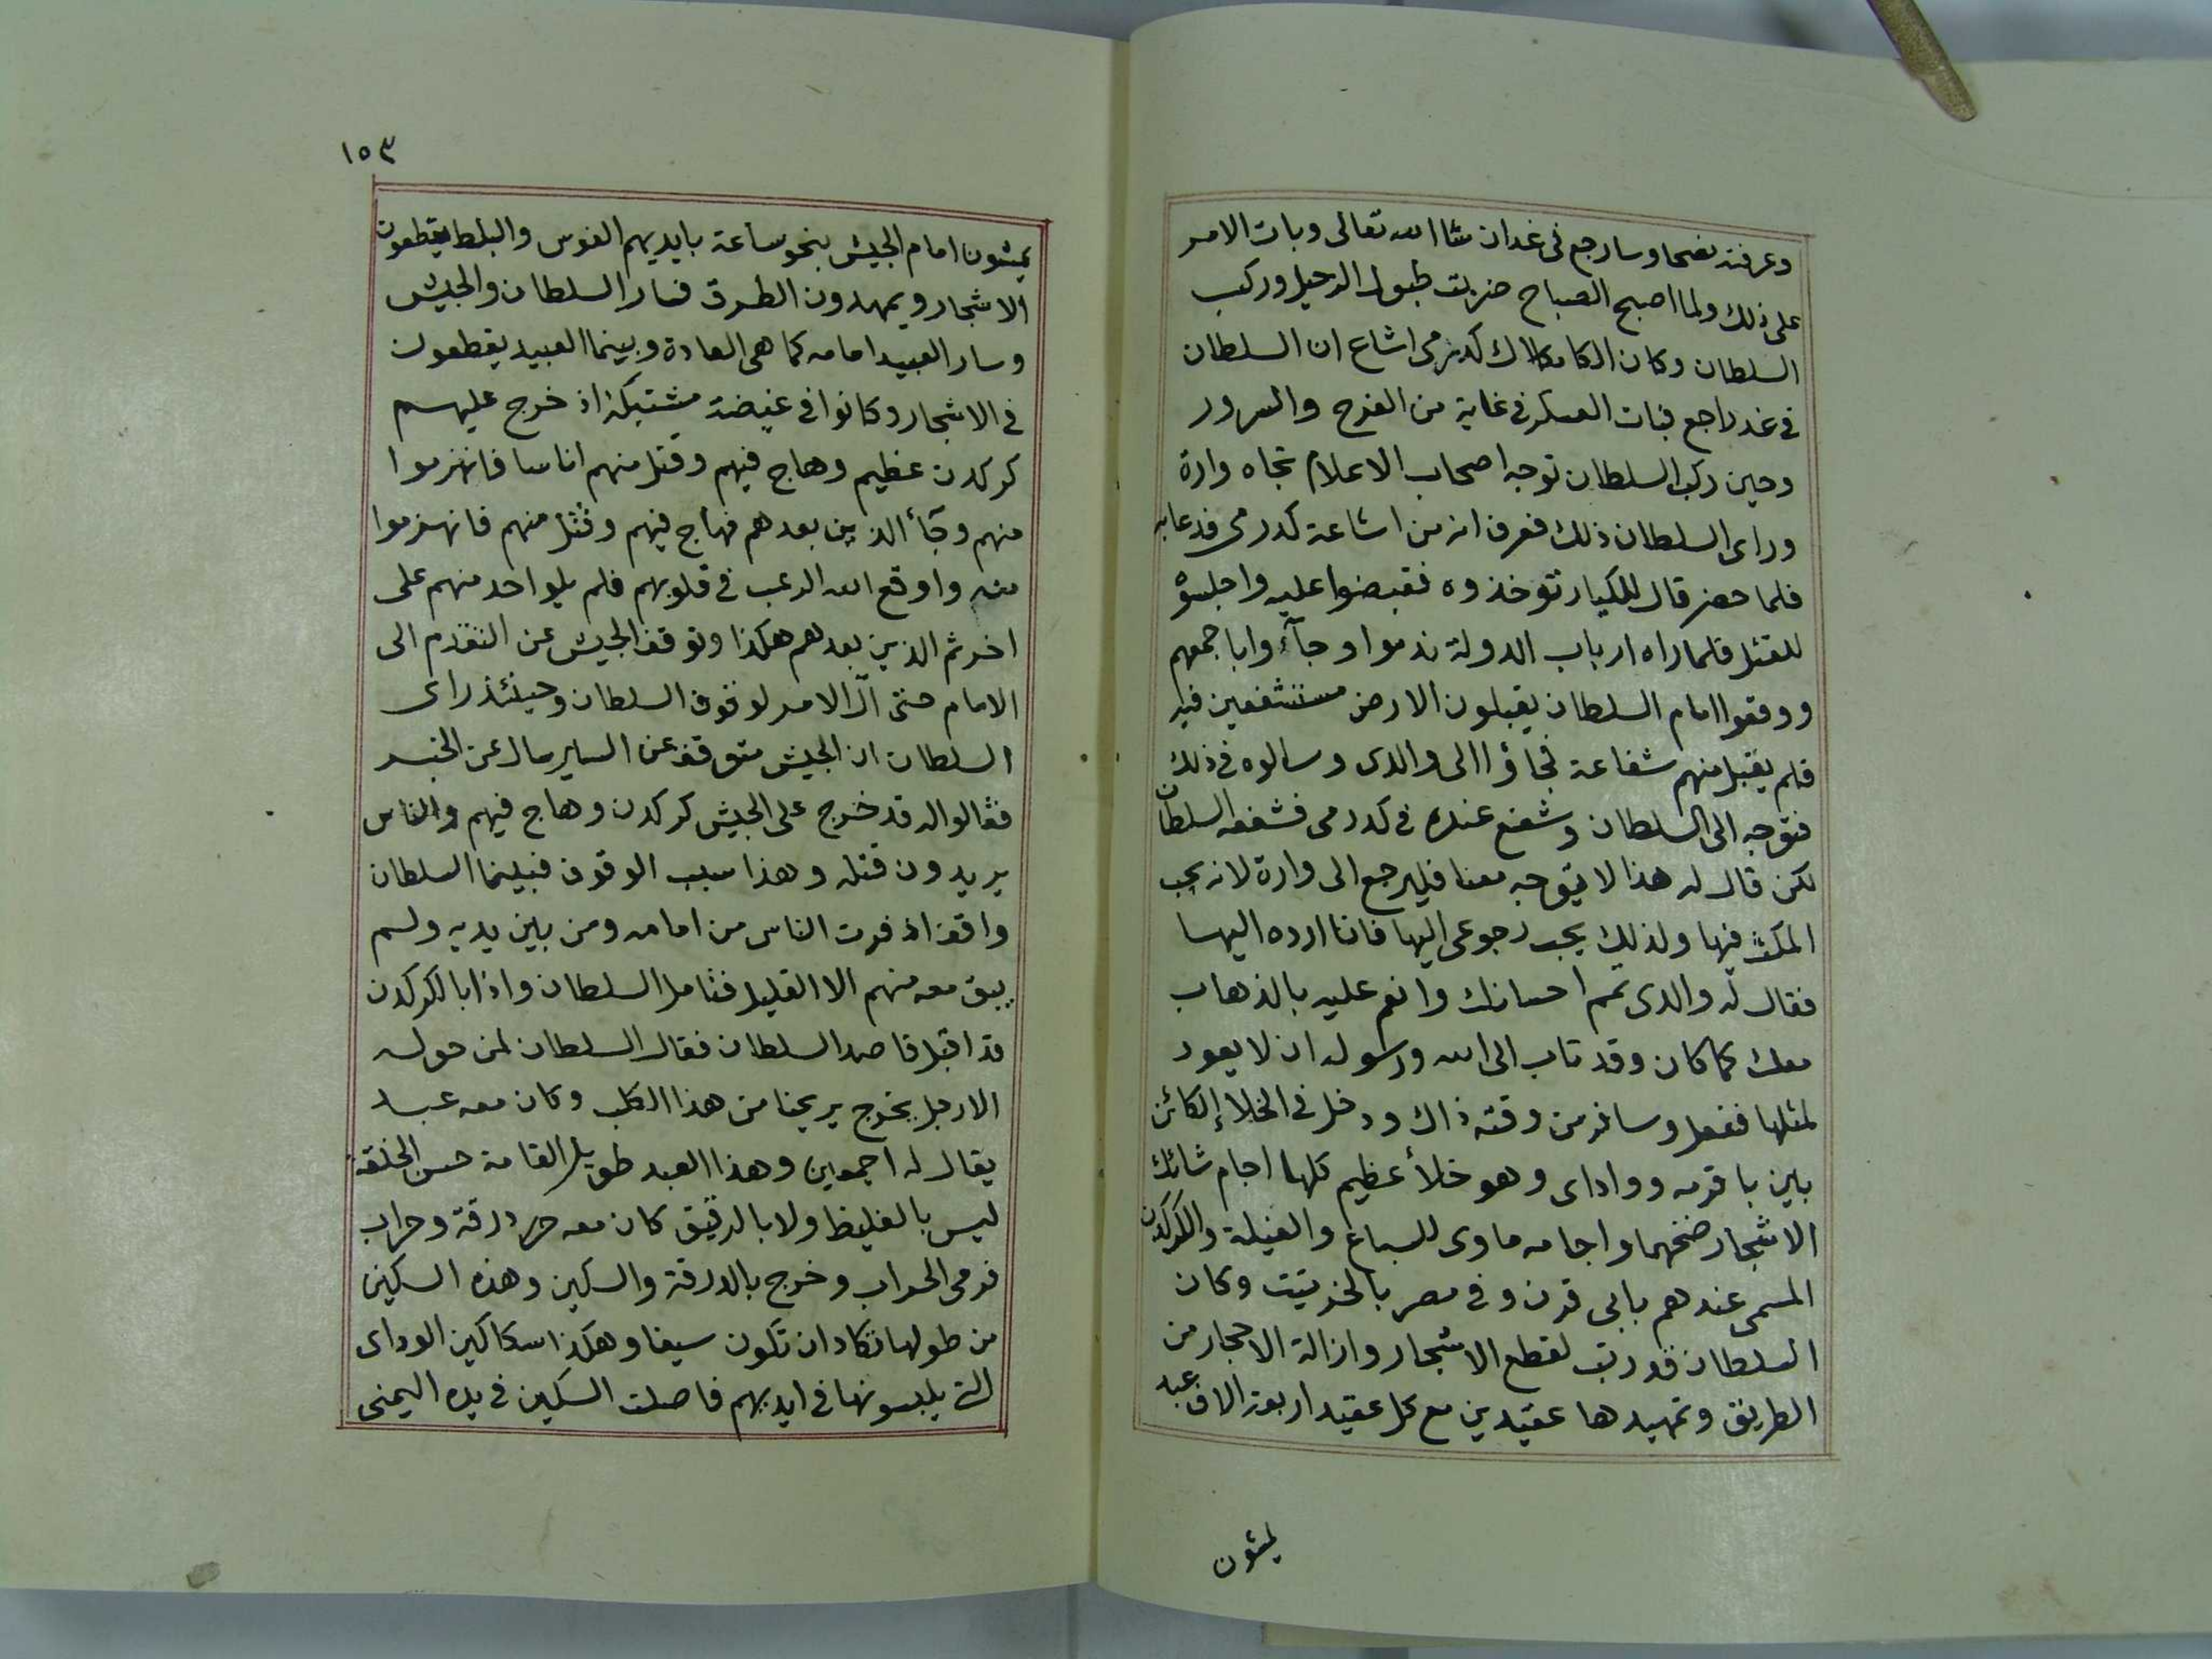 وعرفته نصحا وسارجع فى غد ان شا الله تعالى وبات الامر
على ذلك ولما اصبح الصباح ضربت طبول الرحيل وركب
السلطان وكان الكامكلاك كدرمى اشاع ان السلطان
فى غد راجع فبات العسكر فى غاية من الفرح والسرور
وحين ركب السلطان توجه اصحاب الاعلام تجاه وارة
وراى السلطان ذلك فعرف انه من اشاعة كدرمى فدعا به
فلما حضر قال للكبارتو خذوه فقبضوا عليه واجلسوه
للقتل فلما راه ارباب الدولة ندموا وجآءوا باجمعهم
ووقفوا امام السلطان يقبلون الارض مستشفعين فيه
فلم يقبل منهم شفاعة فجاؤا الى والدى وسالوه فى ذلك
فتوجه الى السلطان وشفع عنده فى كدرمى فشفعه السلطان
لكن قال له هذا لا يتوجه معنا فليرجع الى وارة لانه يحب
المكث فيها ولذلك يحب رجوعى اليها فانا ارده اليها
فقال له والدى تمم احسانك وانعم عليه بالذهاب
معك كما كان وقد تاب الى الله ورسوله ان لا يعود
لمثلها ففعل وسافر من وقته ذاك ودخل فى الخلاء الكائن
بين باقرمه وواداى وهو خلأ عظيم كلها اجام شائك
الاشجار ضخمها واجامه ماوى للسباع والفيلة والكركدن
المسمى عندهم بابى قرن وفى مصر بالخرتيت وكان
السلطان قد رتب لقطع الاشجار وازالة الاحجار من
الطريق وتمهيدها عقيدين مع كل عقيد اربعة الاف عبد
يمشون
١٥٣
يمشون امام الجيش بنحو ساعة بايديهم الفوس والبلط يقطعون
الاشجار ويمهدون الطرق فسار السلطان والجيش
وسار العبيد امامه كما هى العادة وبينما العبيد يقطعون
فى الاشجار وكانوا فى غيضة مشتبكة اذ خرج عليهم
كركدن عظيم وهاج فيهم وقتل منهم اناسا فانهزموا
منهم وجآء الذين بعدهم فهاج فيهم وقتل منهم فانهزموا
منه واوقع الله الرعب فى قلوبهم فلم يلو احد منهم على
اخر ثم الذين بعدهم هكذا وتوقف الجيش عن التقدم الى
الامام حتى آل الامر لوقوف السلطان وحينئذ راى
السلطان ان الجيش متوقف عن السير سال عن الخبر
فقالوا له قد خرج على الجيش كركدن وهاج فيهم والناس
يريدون قتله وهذا سبب الوقوف فبينما السلطان
واقف اذ فرت الناس من امامه ومن بين يديه ولم
يبق معه منهم الا القليل فتامل السلطان واذا بالكركدن
قد اقبل قاصد السلطان فقال السلطان لمن حوله
الا رجل يخرج يريحنا من هذا الكلب وكان معه عبد
يقال له اجمعين وهذا العبد طويل القامة حسن الخلقة
ليس بالغليظ ولا بالرقيق كان معه درقة وحراب
فرمى الحراب وخرج بالدرقة والسكين وهذه السكين
من طولها تكاد ان تكون سيفا وهكذا سكاكين الوداى
التى يلبسونها فى ايديهم فاصلت السكين فى يده اليمنى